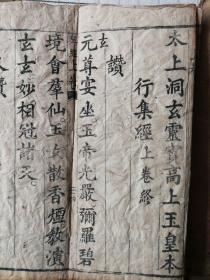 太上洞玄靈寶高上玉皇本
行集經上卷終
讚
元尊安坐玉帝光嚴彌羅碧
玄
境會羣仙玉女散香煙教演
玄玄妙相冠諸天